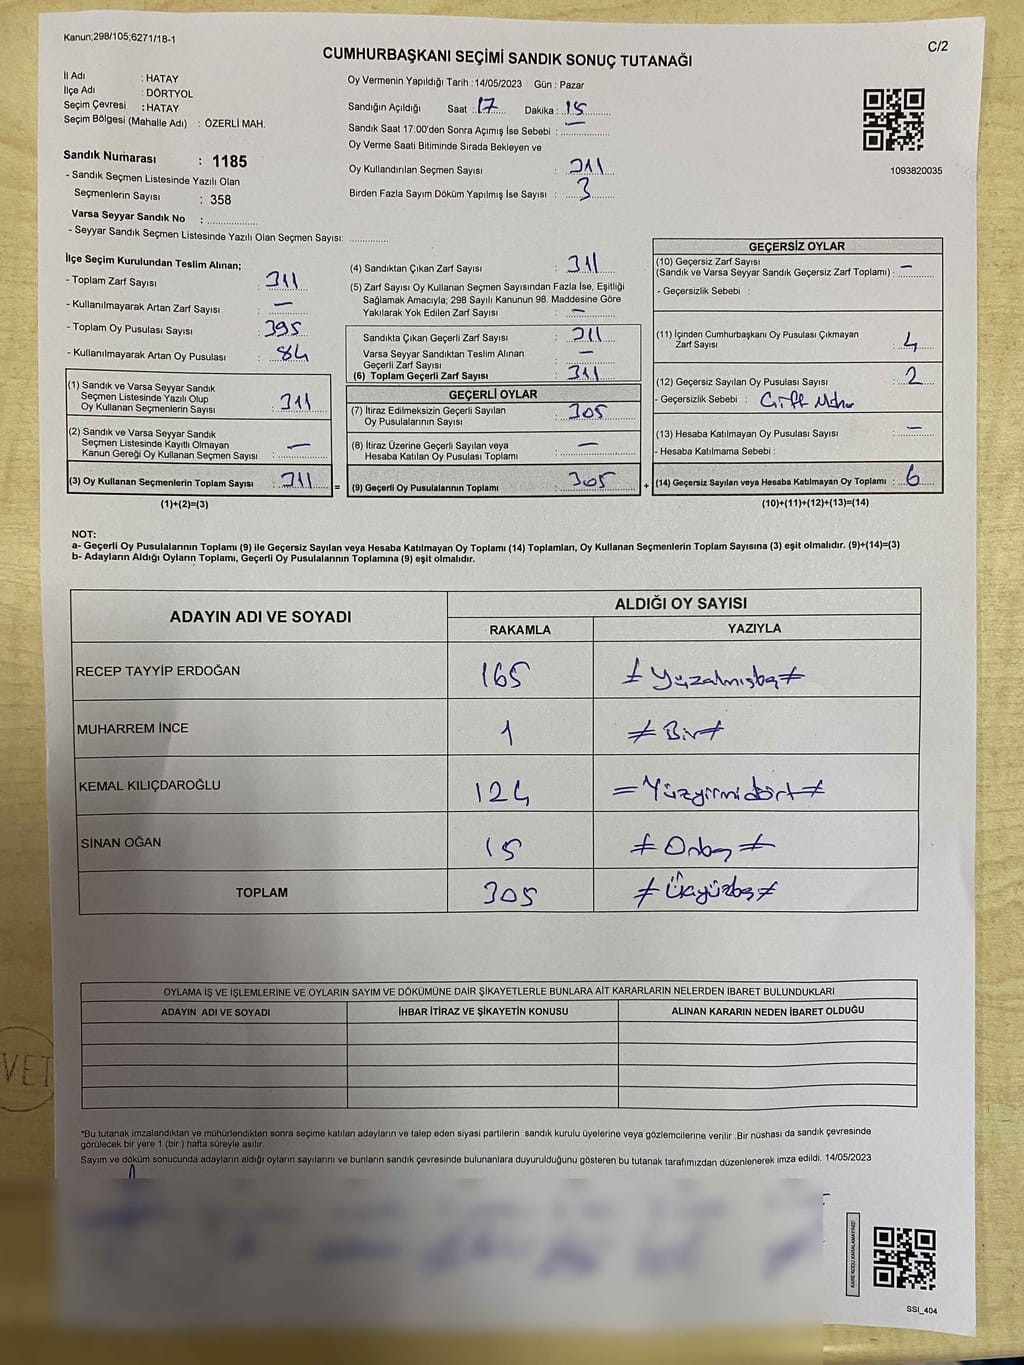 Kanun;298/105;6271/18-1
C/2
CUMHURBAŞKANI SEÇİMİ SANDIK SONUÇ TUTANAĞI
İl Adı : HATAY
İlçe Adı : DÖRTYOL
Seçim Çevresi : HATAY
Seçim Bölgesi (Mahalle Adı) : ÖZERLİ MAH.
Oy Vermenin Yapıldığı Tarih :14/05/2023 Gün : Pazar
Sandığın Açıldığı Saat : 17 Dakika : 15
Sandık Saat 17.00'den Sonra Açımış İse Sebebi : —
Oy Verme Saati Bitiminde Sırada Bekleyen ve
Oy Kullandırılan Seçmen Sayısı : 311
Birden Fazla Sayım Döküm Yapılmış İse Sayısı : 3
1093820035
Sandık Numarası : 1185
- Sandık Seçmen Listesinde Yazılı Olan
Seçmenlerin Sayısı : 358
Varsa Seyyar Sandık No :
- Seyyar Sandık Seçmen Listesinde Yazılı Olan Seçmen Sayısı:
İlçe Seçim Kurulundan Teslim Alınan;
- Toplam Zarf Sayısı : 311
- Kullanılmayarak Artan Zarf Sayısı : —
- Toplam Oy Pusulası Sayısı : 395
- Kullanılmayarak Artan Oy Pusulası : 84
(1) Sandık ve Varsa Seyyar Sandık
Seçmen Listesinde Yazılı Olup
Oy Kullanan Seçmenlerin Sayısı : 311
(2) Sandık ve Varsa Seyyar Sandık
Seçmen Listesinde Kayıtlı Olmayan
Kanun Gereği Oy Kullanan Seçmen Sayısı : —
(3) Oy Kullanan Seçmenlerin Toplam Sayısı : 311
(1)+(2)=(3)
(4) Sandıktan Çıkan Zarf Sayısı : 311
(5) Zarf Sayısı Oy Kullanan Seçmen Sayısından Fazla İse, Eşitliği
Sağlamak Amacıyla; 298 Sayılı Kanunun 98. Maddesine Göre
Yakılarak Yok Edilen Zarf Sayısı : —
Sandıkta Çıkan Geçerli Zarf Sayısı : 311
Varsa Seyyar Sandıktan Teslim Alınan
Geçerli Zarf Sayısı : —
(6) Toplam Geçerli Zarf Sayısı : 311
GEÇERLİ OYLAR
(7) İtiraz Edilmeksizin Geçerli Sayılan
Oy Pusulalarının Sayısı : 305
(8) İtiraz Üzerine Geçerli Sayılan veya
Hesaba Katılan Oy Pusulası Toplamı : —
= (9) Geçerli Oy Pusulalarının Toplamı : 305 +
GEÇERSİZ OYLAR
(10) Geçersiz Zarf Sayısı
(Sandık ve Varsa Seyyar Sandık Geçersiz Zarf Toplamı) : —
- Geçersizlik Sebebi :
(11) İçinden Cumhurbaşkanı Oy Pusulası Çıkmayan
Zarf Sayısı : 4
(12) Geçersiz Sayılan Oy Pusulası Sayısı : 2
- Geçersizlik Sebebi : Çift Mühür
(13) Hesaba Katılmayan Oy Pusulası Sayısı : —
- Hesaba Katılmama Sebebi :
(14) Geçersiz Sayılan veya Hesaba Katılmayan Oy Toplamı : 6
(10)+(11)+(12)+(13)=(14)
NOT:
a- Geçerli Oy Pusulalarının Toplamı (9) ile Geçersiz Sayılan veya Hesaba Katılmayan Oy Toplamı (14) Toplamları, Oy Kullanan Seçmenlerin Toplam Sayısına (3) eşit olmalıdır. (9)+(14)=(3)
b- Adayların Aldığı Oyların Toplamı, Geçerli Oy Pusulalarının Toplamına (9) eşit olmalıdır.
ADAYIN ADI VE SOYADI ALDIĞI OY SAYISI
RAKAMLA YAZIYLA
RECEP TAYYİP ERDOĞAN 165 ≠ Yüzalmışbeş ≠
MUHARREM İNCE 1 ≠ Bir ≠
KEMAL KILIÇDAROĞLU 124 = Yüzyirmidört ≠
SİNAN OĞAN 15 ≠ Onbeş ≠
TOPLAM 305 ≠ Üçyüzbeş ≠
OYLAMA İŞ VE İŞLEMLERİNE VE OYLARIN SAYIM VE DÖKÜMÜNE DAİR ŞİKAYETLERLE BUNLARA AİT KARARLARIN NELERDEN İBARET BULUNDUKLARI
ADAYIN ADI VE SOYADI İHBAR İTİRAZ VE ŞİKAYETİN KONUSU ALINAN KARARIN NEDEN İBARET OLDUĞU
*Bu tutanak imzalandıktan ve mühürlendikten sonra seçime katılan adayların ve talep eden siyasi partilerin sandık kurulu üyelerine veya gözlemcilerine verilir .Bir nüshası da sandık çevresinde
görülecek bir yere 1 (bir ) hafta süreyle asılır.
Sayım ve döküm sonucunda adayların aldığı oyların sayılarını ve bunların sandık çevresinde bulunanlara duyurulduğunu gösteren bu tutanak tarafımızdan düzenlenerek imza edildi. 14/05/2023
SSI_404
VET